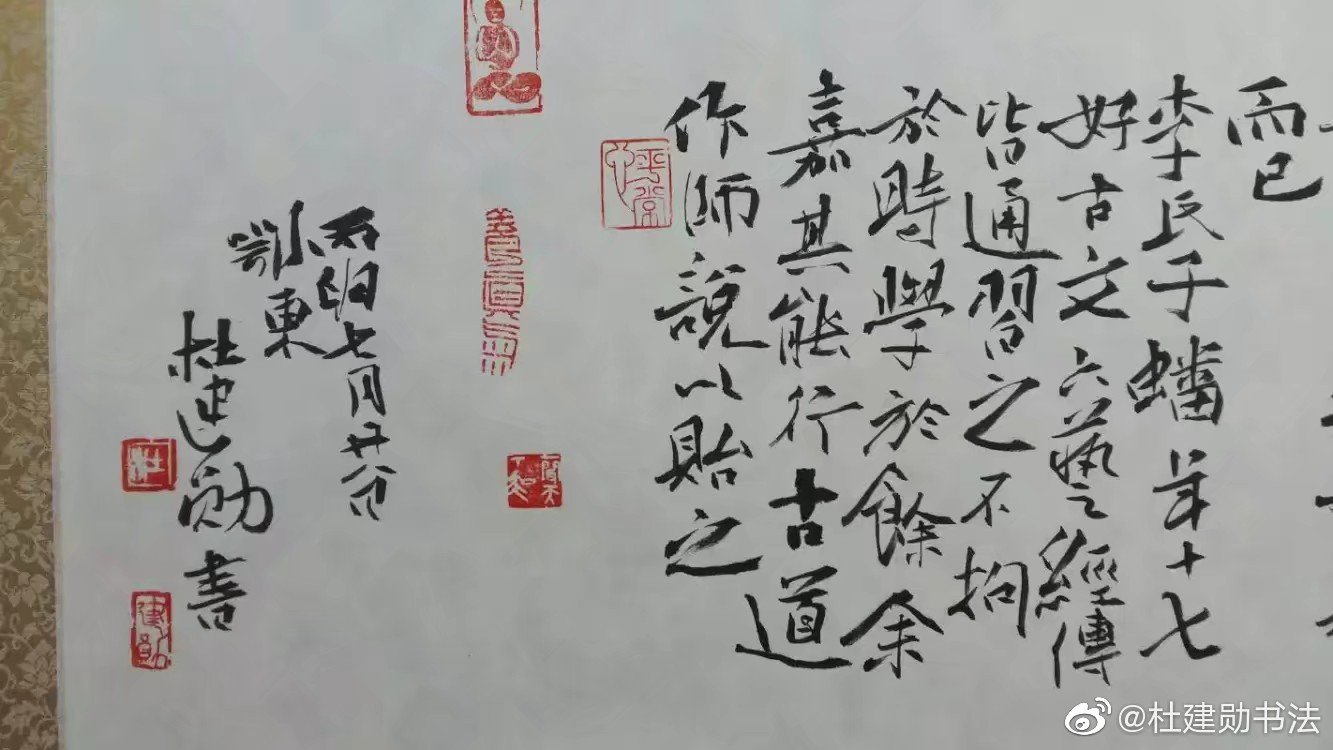 而已
李氏子蟠年十七
好古文六藝經傳
皆通習之不拘
於時學於餘余
嘉其能行古道
作師說以貽之
丙申七月廿八日
鄂東
杜建勋書
建勛
@杜建勋书法